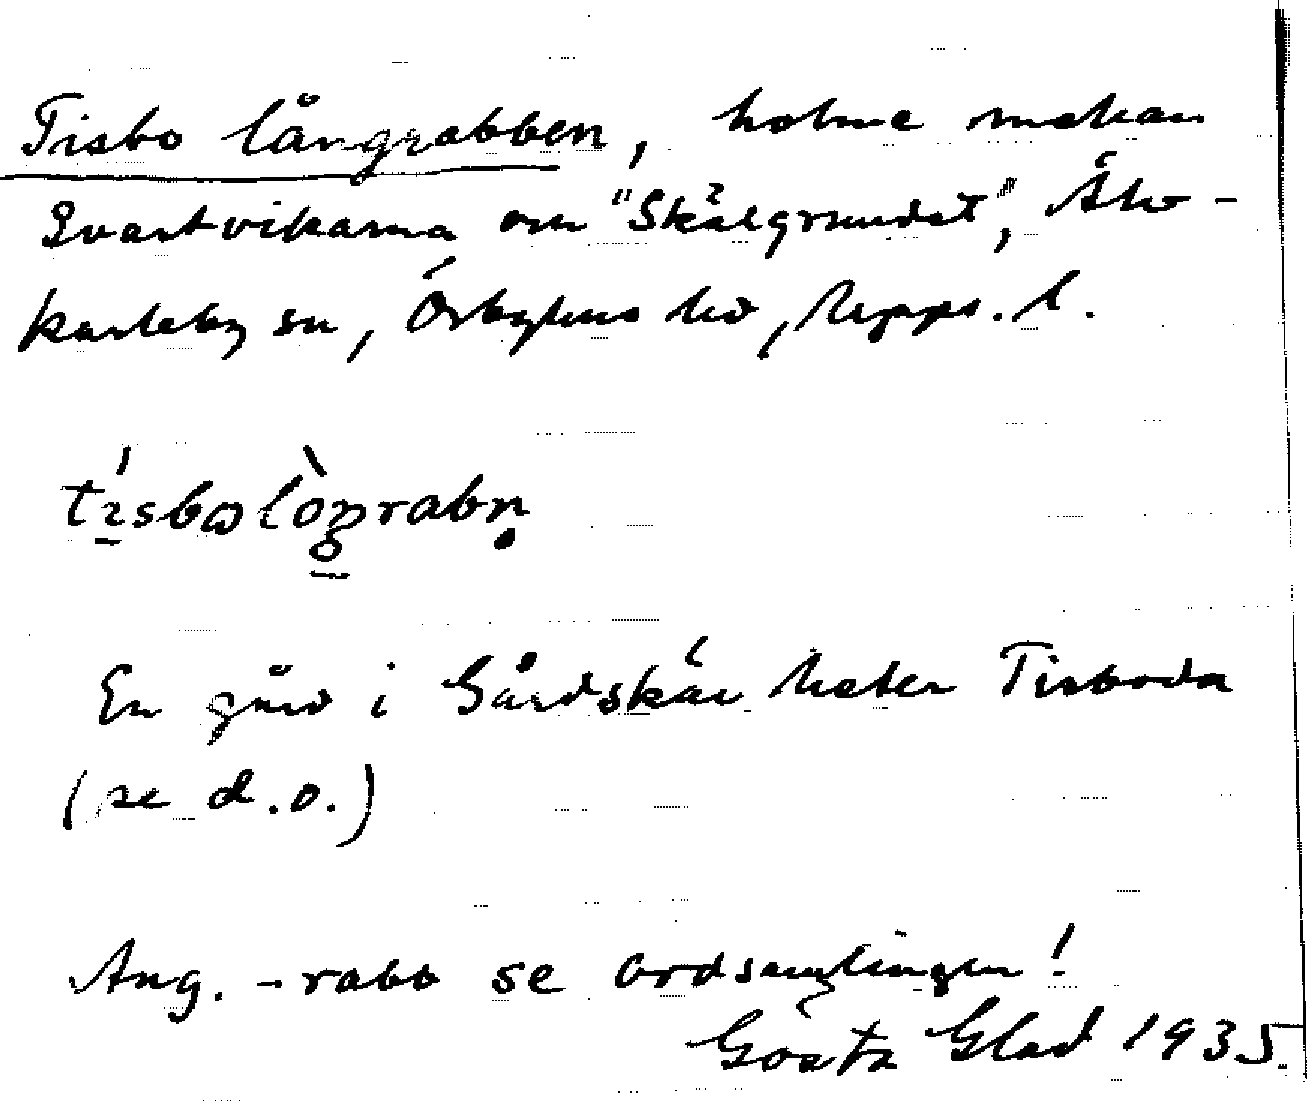 Tisbo långrabben, holme mekan
Svartvikarna om "Skälgrundet", Älv-
karleby sn, Örbyhus hd, Upps. l.
En gård i Gårdskär heter Tisboda
(se d.o.)
Ang. -rabb se ordsamlingen!
Gösta Glad 1935.